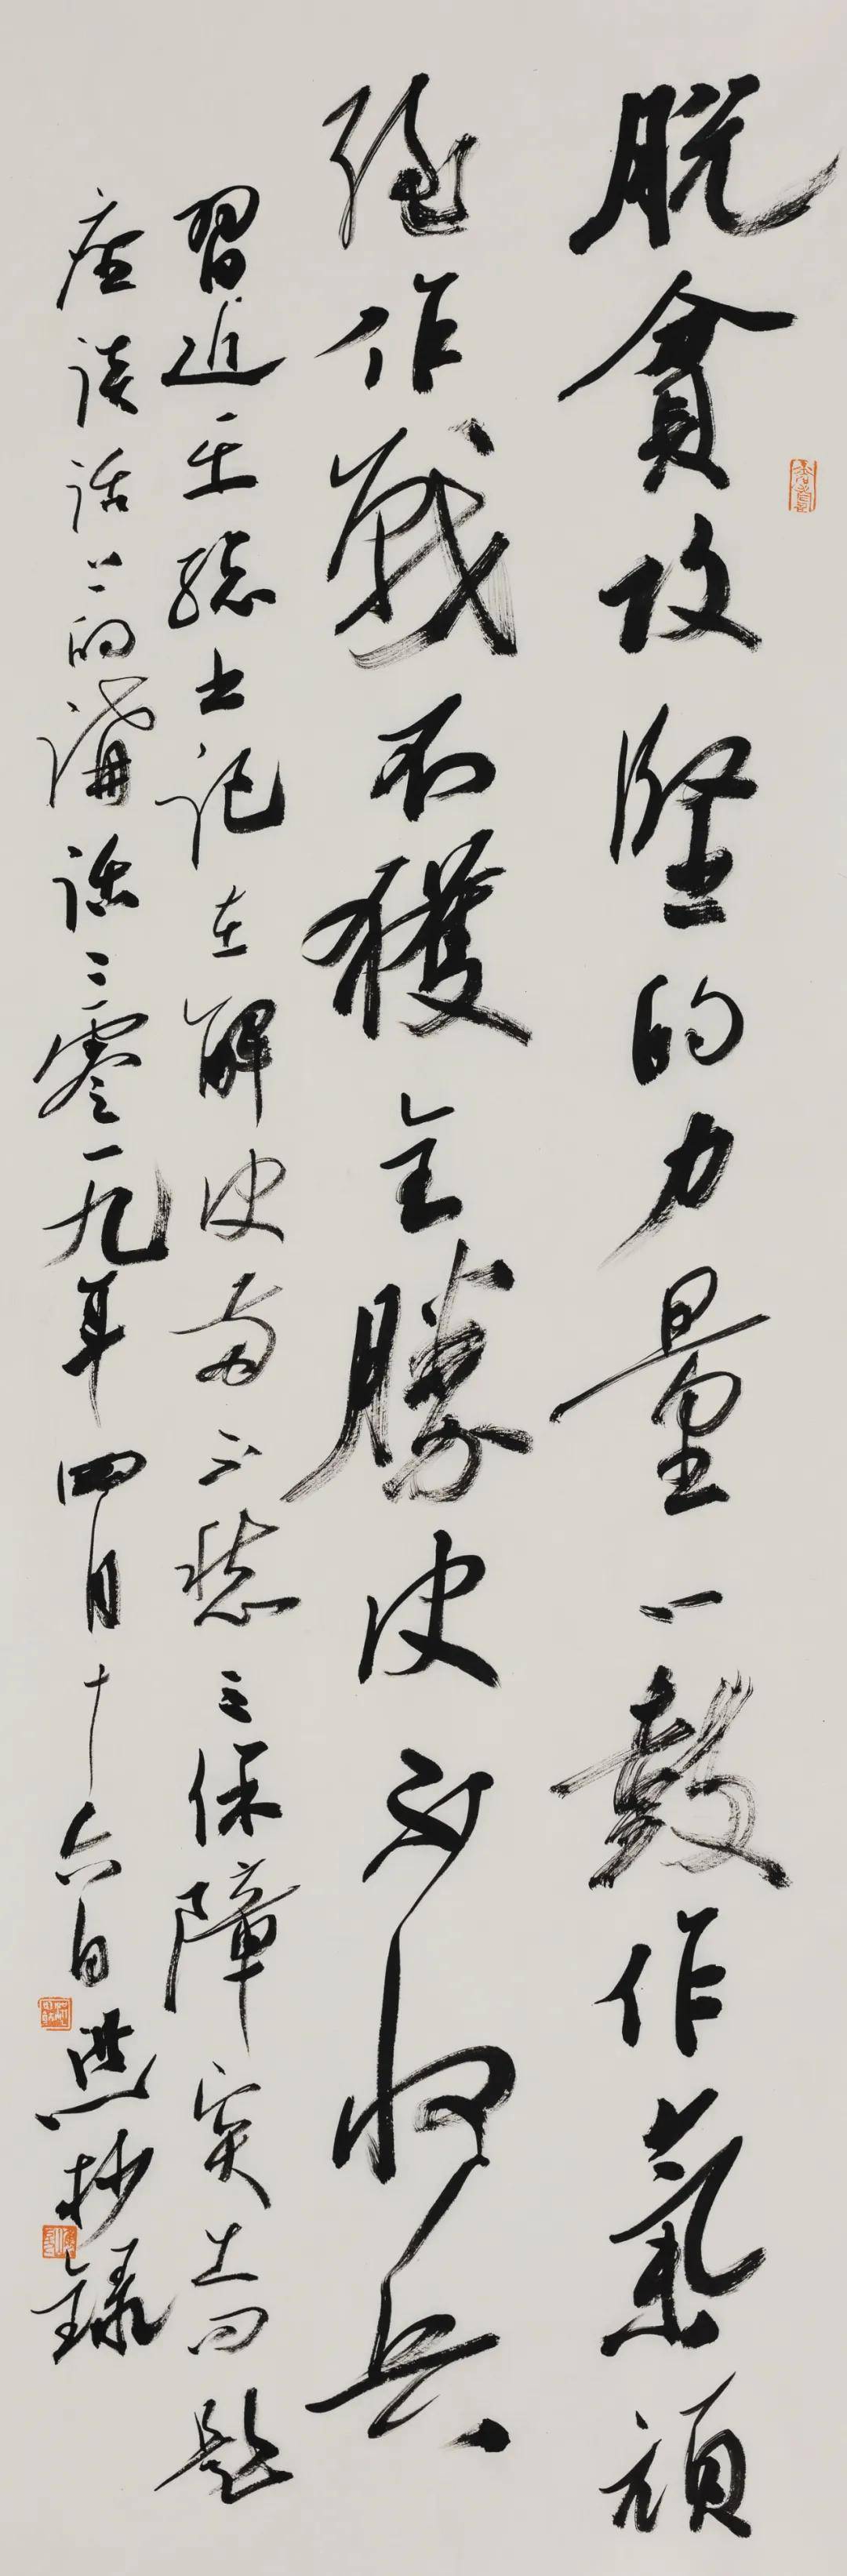 脱貧攻堅的力量一鼓作氣頑
強作戰不獲全勝決不收兵
習近平總書記在解決兩不愁三保障突出問題
座談話上的講話二零一九年四月十六日抄錄